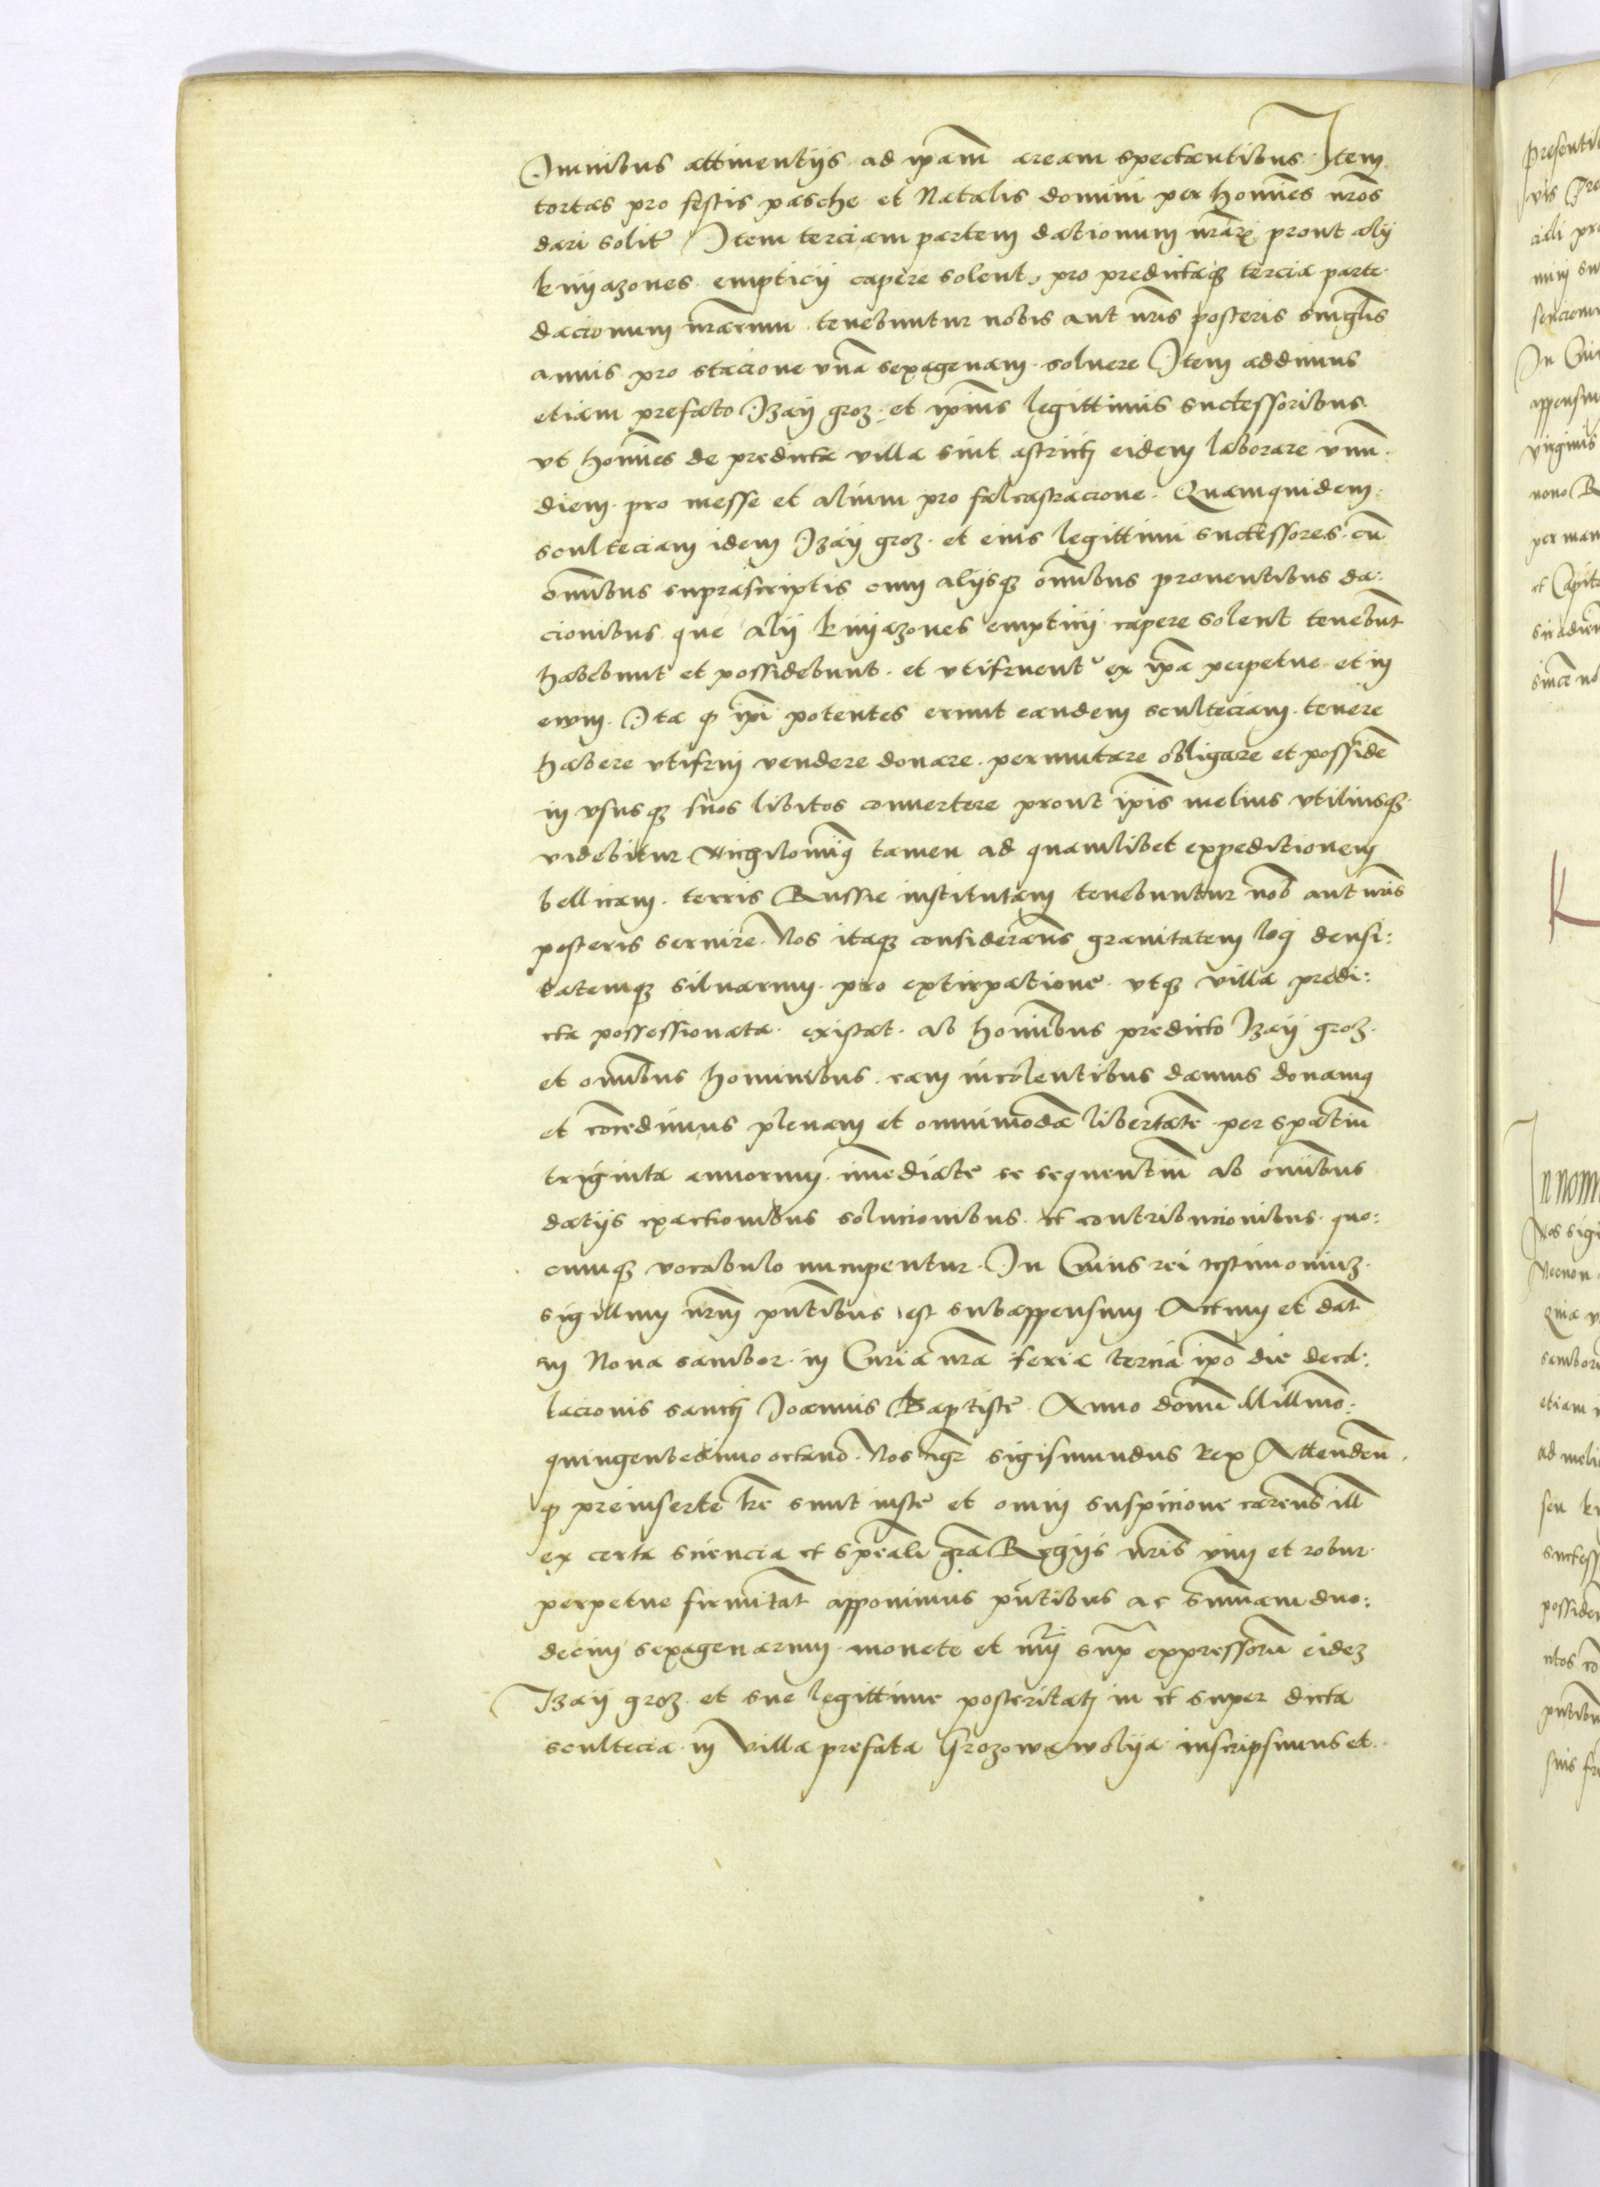 Omnibus attinentijs ad ip̄am aream spectantibus Item
tortas pro festis pasche et Natalis domini per homi̅es nr̄os
dari solit̄ Item terciam partem dationum nr̄arꝝ prout alij
knijazones empticij capere solent, pro predictaqꝫ tercia parte
dacionum nr̄arum tenebuntur nobis aut nr̄is posteris singl̄is
annis pro stacione vnā sexagenam soluere Item addimus
etiam prefato Izaij groz et ip̄ius legittimis successoribus
vt homi̅es de predicta villa sint astricti eidem laborare vnū
diem pro messe et alium pro falcastracione. Quamquidem
sculteciam idem Izaij groz et eius legittimi successores cū
om̅ibus suprascriptis cum alijsqꝫ om̅ibus prouentibus da:
cionibus que alij knijazones empticij capere solent tenebūt
habebunt et possidebunt et vtifruent᷑ ex ip̄a perpetue et in
ewm. Ita ꝙ ip̄i potentes erunt eandem sculteciam tenere
habere vtifrui vendere donare permutare obligare et possidē
in vsusqꝫ suos libitos conuertere prout ip̄is melius vtiliusqꝫ
videbitur Nichilomīq tamen ad quamlibet expeditionem
bellicam terris Russie institutam tenebuntur nob̄ aut nr̄is
posteris seruire. Nos itaqꝫ considerān̄s grauitatem loci densi:
tatemqꝫ siluarum pro extirpatione vtqꝫ villa predi:
cta possessionata existat ab homi̅bus predicto Izaij groz
et om̅ibus hominibus eam incolentibus damus donamq
et cōcedimus plenam et omnimodā libertatē per spatiū
triginta annorum im̅ediate se sequentiū ab om̅ibus
datijs exactionibus solucionibus et contribucionibus quo:
cumqꝫ vocabulo nuncupentur. In Cuius rei testimoniuꝫ
sigillum nr̄m pn̄tibus est subappensum Actum et dat̄
in Noua sambor in Curia nr̄a feria tercia ip̄o die decol:
lacionis sancti Joannis Baptiste Anno domī Millmō
quingentesimo octauo. Nos igr̄ Sigismundus Rex Attenden̄
ꝙ preinserte lr̄e sunt iuste et omni suspicione caren̄s ill̄
ex certa sciencia et sp̄eali gr̄a Regijs nr̄is vim et robur
perpetue firmitat̄ apponimus pn̄tibus ac sum̅am duo:
decim sexagenarum monete et nūi sup̄ expressorū eideꝫ
Izaij groz et sue legittime posteritati in et super dicta
scultecia in villa prefata Grozowa wolija inscripsimus et